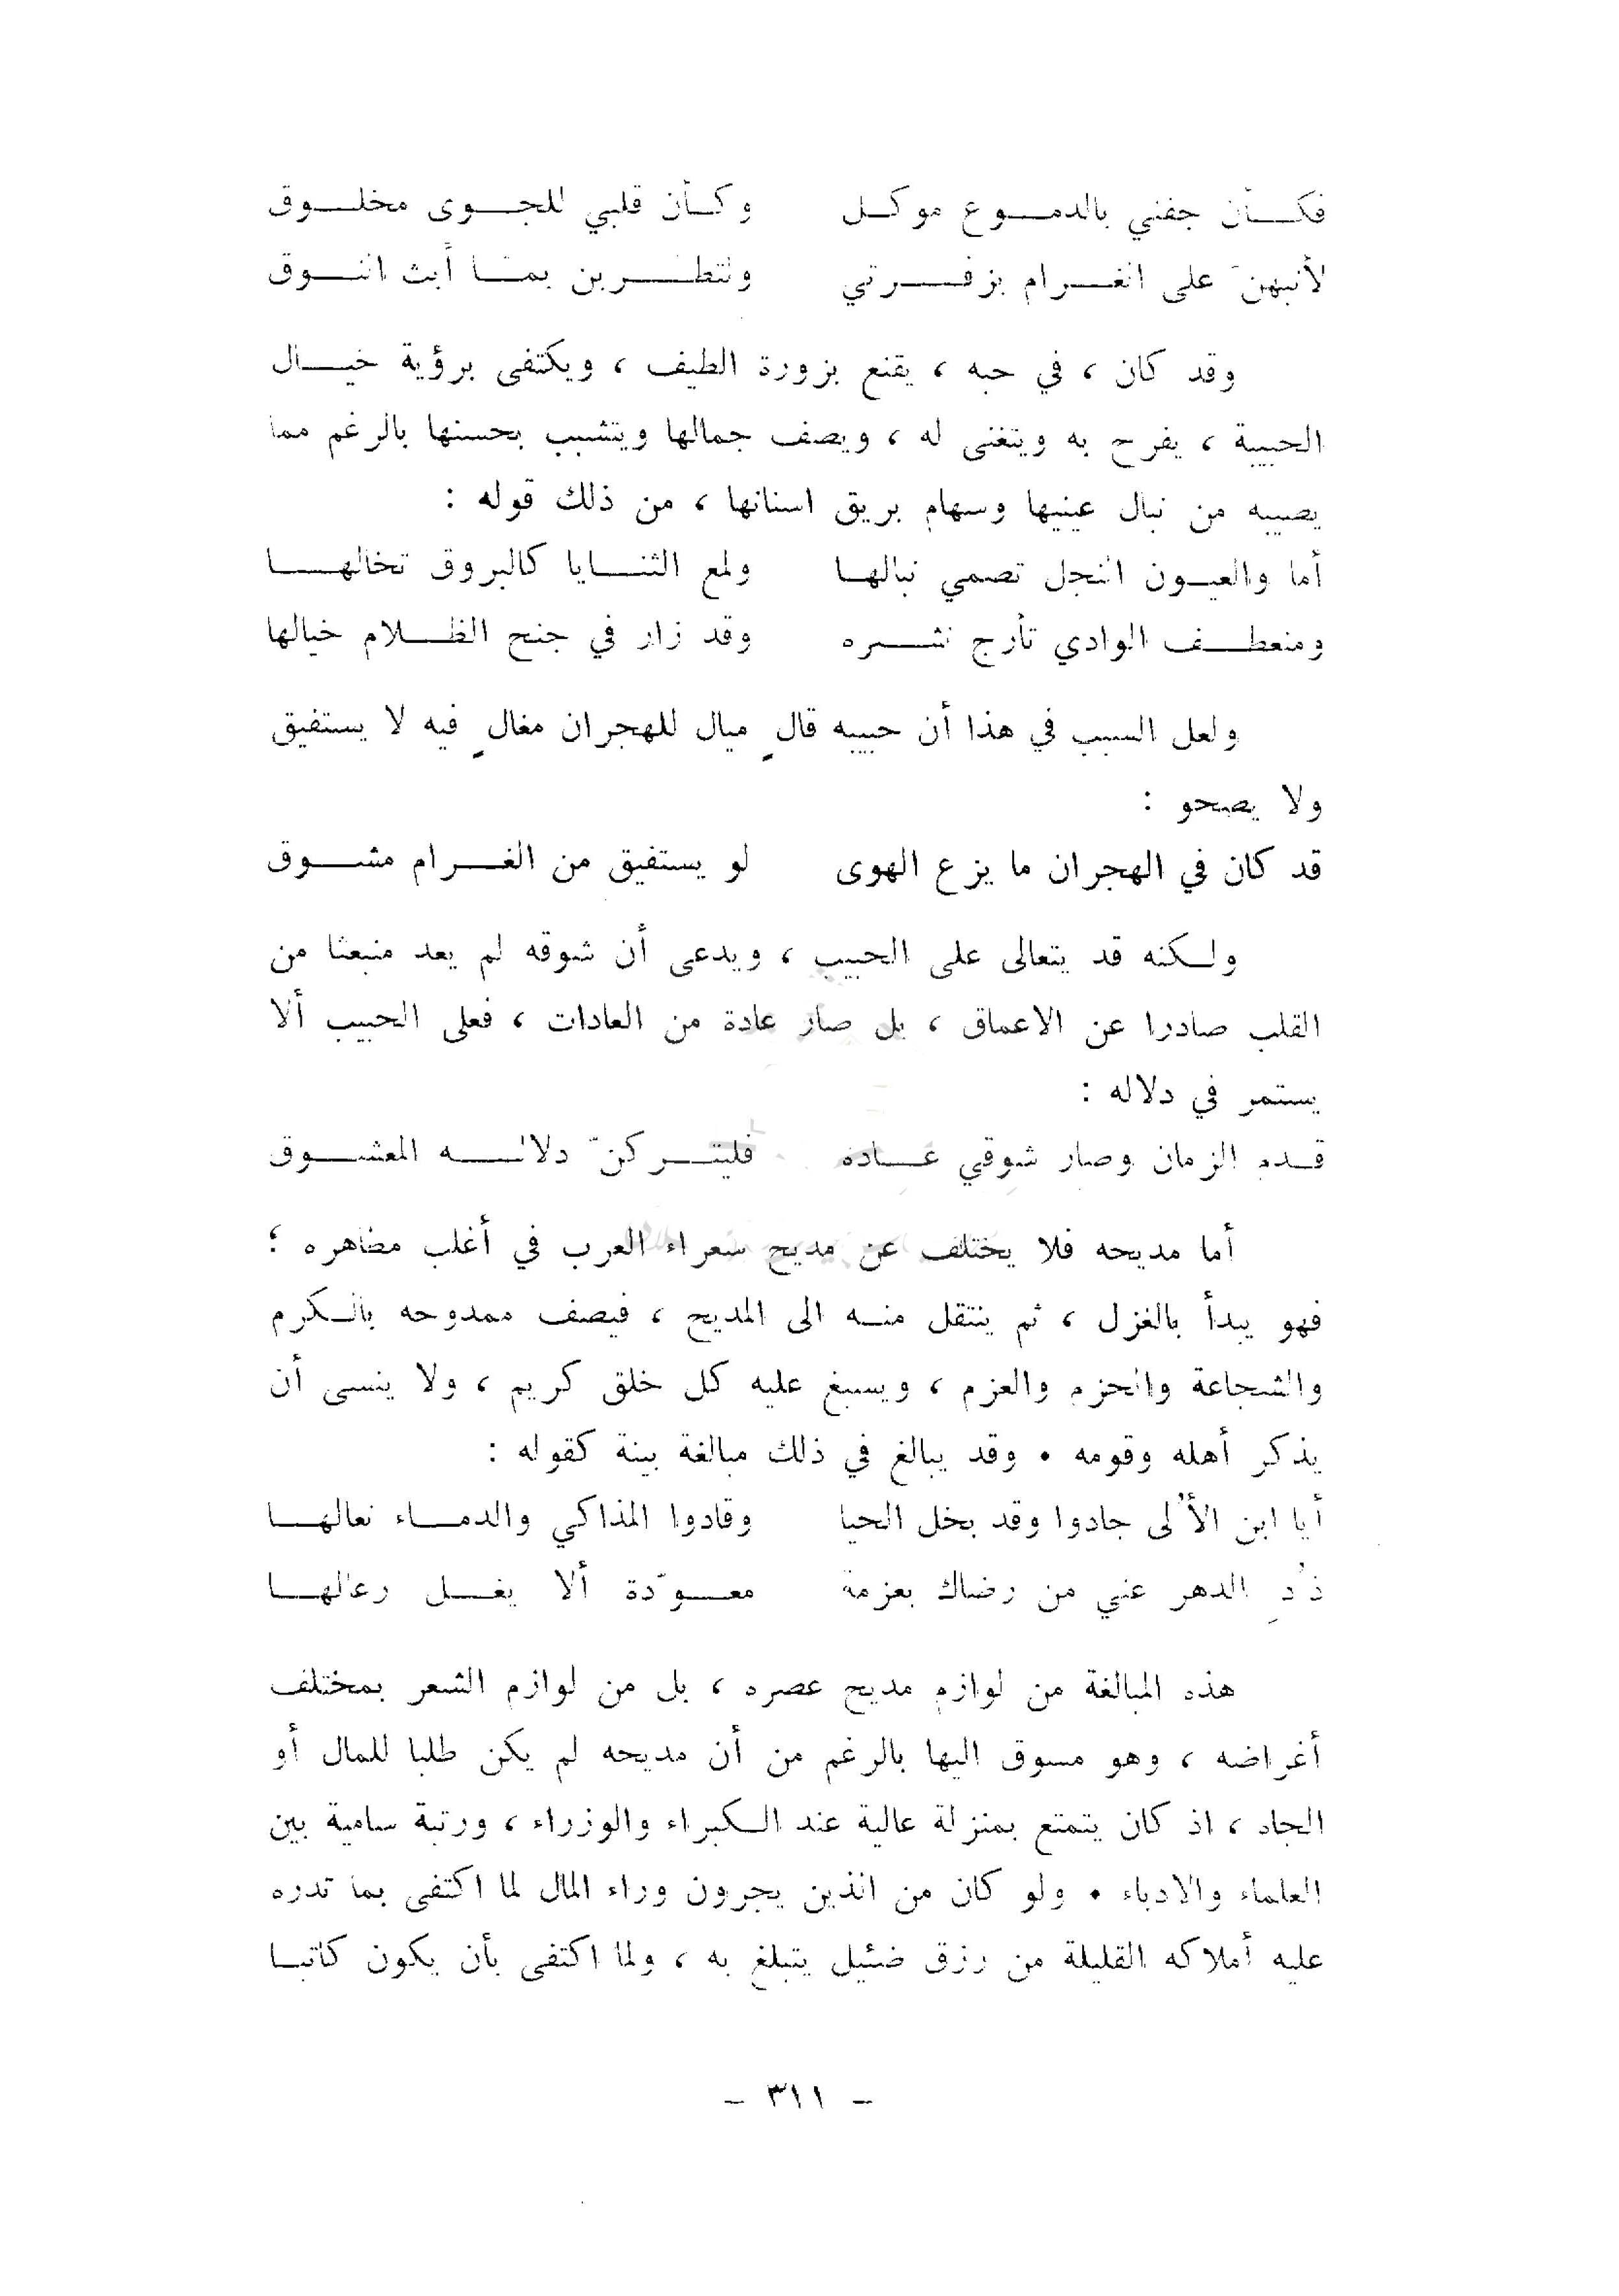 فكأن جفني بالدموع موكل وكأن قلبي للجوى مخلوق
لأنبهنّ على الغرام بزفرتي ولتطربن بما أبث النوق
وقد كان ، في حبه ، يقنع بزورة الطيف ، ويكتفى برؤية خيال
الحبيبة ، يفرح به ويتغنى له ، ويصف جمالها ويتشبب بحسنها بالرغم مما
يصيبه من نبال عينيها وسهام بريق اسنانها ، من ذلك قوله :
أما والعيون النجل تصمي نبالها ولمع الثنايا كالبروق تخالها
ومنعطف الوادي تأرج نشره وقد زار في جنح الظلام خيالها
ولعل السبب في هذا أن حبيبه قالٍ ميال للهجران مغالٍ فيه لا يستفيق
ولا يصحو :
قد كان في الهجران ما يزع الهوى لو يستفيق من الغرام مشوق
ولكنه قد يتعالى على الحبيب ، ويدعى أن شوقه لم يعد منبعثا من
القلب صادرا عن الاعماق ، بل صار عادة من العادات ، فعلى الحبيب ألا
يستمر في دلاله :
قدم الزمان وصار شوقي عاده فليتركنّ دلاله المعشوق
أما مديحه فلا يختلف عن مديح شعراء العرب في أغلب مظاهره ؛
فهو يبدأ بالغزل ، ثم ينتقل منه الى المديح ، فيصف ممدوحه بالكرم
والشجاعة والحزم والعزم ، ويسبغ عليه كل خلق كريم ، ولا ينسى أن
يذكر أهله وقومه . وقد يبالغ في ذلك مبالغة بينة كقوله :
أيا ابن الأُلى جادوا وقد بخل الحيا وقادوا المذاكي والدماء نعالها
ذُدِ الدهر عني من رضاك بعزمة معوّدة ألا يغل رعالها
هذه المبالغة من لوازم مديح عصره ، بل من لوازم الشعر بمختلف
أغراضه ، وهو مسوق اليها بالرغم من أن مديحه لم يكن طلبا للمال أو
الجاه ، اذ كان يتمتع بمنزلة عالية عند الكبراء والوزراء ، ورتبة سامية بين
العلماء والادباء . ولو كان من الذين يجرون وراء المال لما اكتفى بما تدره
عليه أملاكه القليلة من رزق ضئيل يتبلغ به ، ولما اكتفى بأن يكون كاتبا
– ٣١١ –